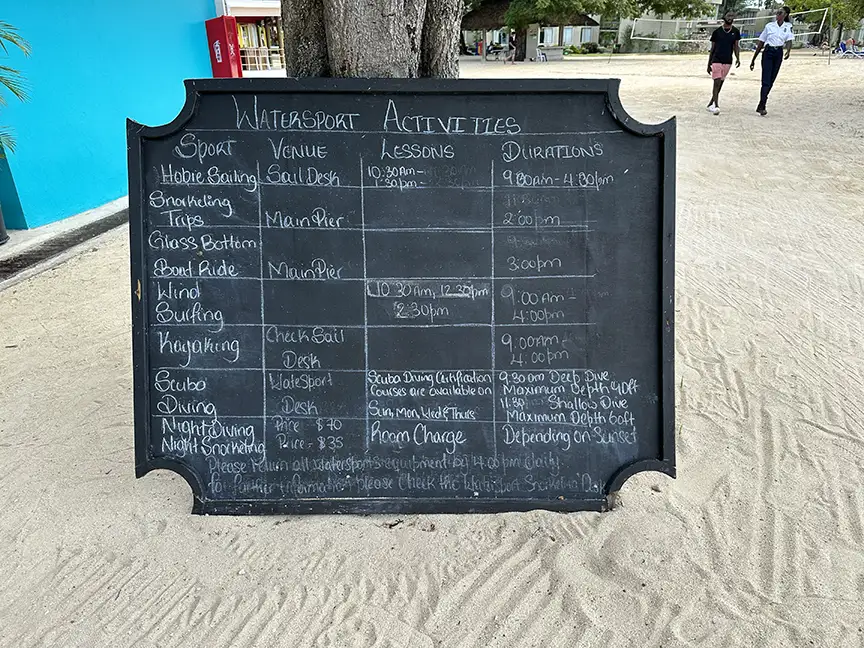 WATERSPORT ACTIVITIES
SPORT VENUE LESSONS DURATIONS
Hobie Sailing Sail Desk 10:30Am- 9:30am- 4:30pm
1:30pm-
Snorkeling
Trips Main Pier 2:00pm
Glass Bottom
Boat Ride Main Pier 3:00pm
Wind 10:30Am, 12:30pm 9:00Am-
Surfing 2:30pm 4:00pm
Kayaking Check Sail 9:00Am-
Desk 4:00pm
Scuba WateSport Scuba Diving Certification 9:30am Deep Dive
Courses are available on Maximum Depth 40ft
Diving Desk Sun, Mon, Wed & Thurs 11:30 Shallow Dive
Maximum Depth 60ft
Night Diving Price - $70 Room Charge Depending on Sunset
Night Snorkeling Price - $35
Please return all watersports equipment by 4:00pm daily
for further information please Check the WaterSport Snorkeling Desk